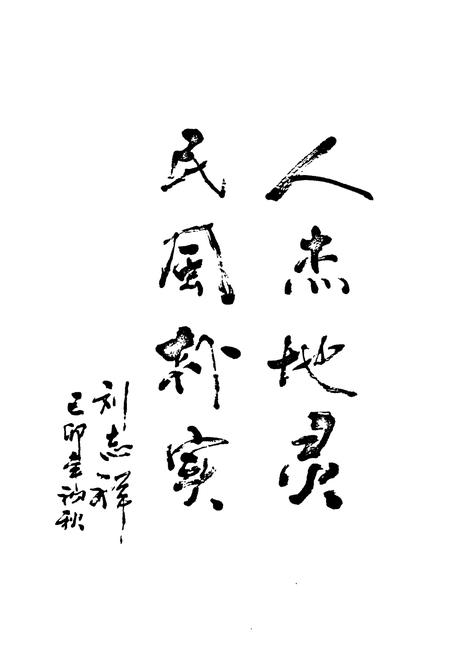 人杰地灵
民风朴实
刘志祥
己卯初秋